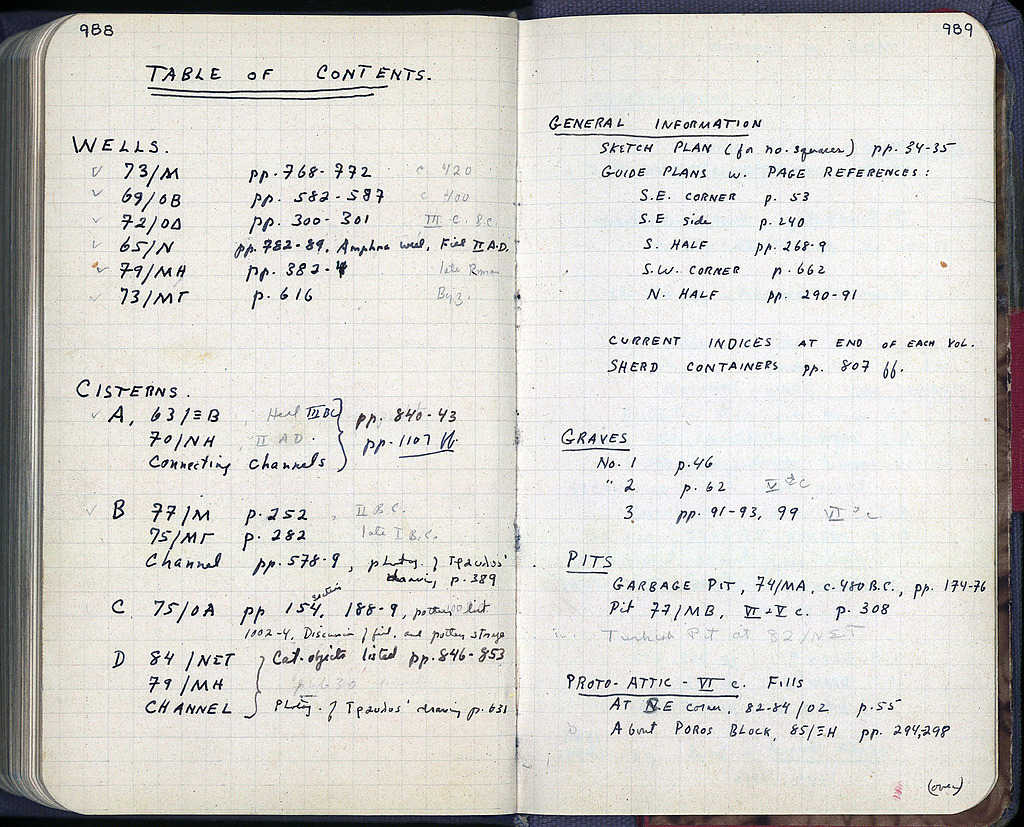 988
TABLE OF CONTENTS.
WELLS.
73/M pp. 768-772 c. 420
69/OB pp. 582-587 c 400
72/OΔ pp. 300-301 III C. B.C.
65/N pp. 782-89, Amphora well, Fill II A.D.
79/MH pp. 382-4 late Roman
73/MΓ p. 616 Byz.
CISTERNS.
A, 63/ΞB Hell III BC pp. 840-43
70/NH, II A D. pp. 1107 ff.
Connecting Channels
B 77/M p. 252, II B.C.
75/MΓ p. 282 late I B.C.
Channel pp. 578-9, photog. of Τραυλος'
drawing p. 389
section
C 75/OA pp 154, 188-9, pottery list
1002-4, Discussion of fill, and pottery storage
D 84/NΣT Cat. objects listed pp. 846-853
79/MH p. 630
CHANNEL Photog. of Τραυλος' drawing p. 631
989
GENERAL INFORMATION
SKETCH PLAN (for no. squares) pp. 34-35
GUIDE PLANS W. PAGE REFERENCES:
S.E. CORNER p. 53
S.E side p. 240
S. HALF pp. 268-9
S.W. CORNER p. 662
N. HALF pp. 290-91
CURRENT INDICES AT END OF EACH VOL.
SHERD CONTAINERS pp. 807 ff.
GRAVES
No. 1 p. 46
" 2 p. 62 V c
3 pp. 91-93, 99 VI c
PITS
GARBAGE PIT, 74/MA, c. 480 B.C., pp. 174-76
Pit 77/MB, VI-V c. p. 308
Turkish Pit at 82/NΣT
PROTO-ATTIC - VI c. Fills
AT N.E corner, 82-84/02 p. 55
About POROS BLOCK, 85/ΞH pp. 294, 298
(over)